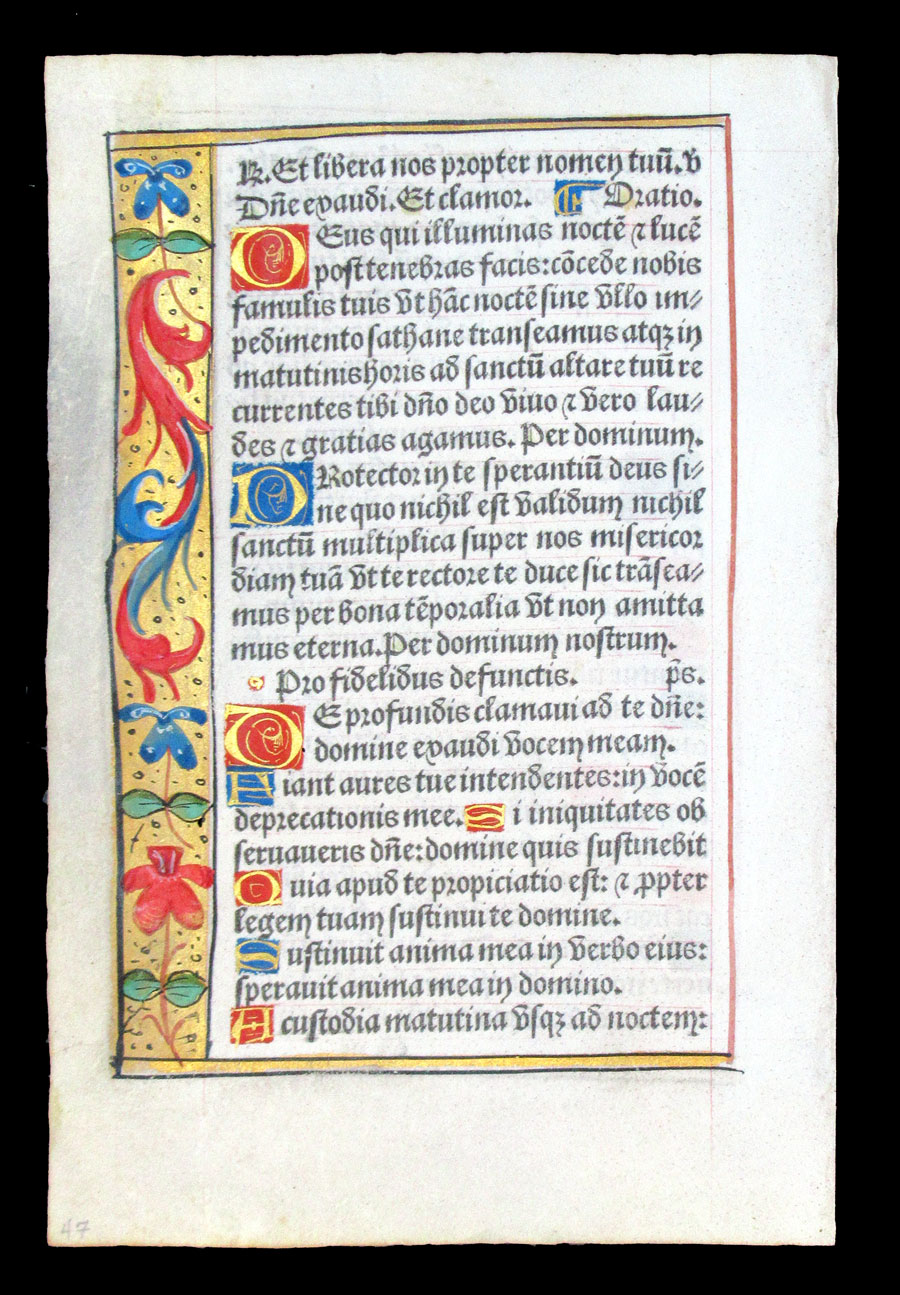 R. Et libera nos propter nomen tuū. v
Dñe exaudi. Et clamor. Oratio.
DEus qui illuminas noctē ⁊ lucē
post tenebras facis: cōcede nobis
famulis tuis vt hāc noctē sine vllo im⸗
pedimento sathane transeamus atqꝫ in
matutinis horis ad sanctū altare tuū re
currentes tibi dño deo viuo ⁊ vero lau⸗
des ⁊ gratias agamus. Per dominum.
PRotector in te sperantiū deus si⸗
ne quo nichil est validum nichil
sanctū multiplica super nos misericor
diam tuā vt te rectore te duce sic trāsea⸗
mus per bona tēporalia vt non amitta
mus eterna. Per dominum nostrum.
Pro fidelibus defunctis. p̄s.
DE profundis clamaui ad te dñe:
domine exaudi vocem meam.
Fiant aures tue intendentes: in vocē
deprecationis mee. Si iniquitates ob
seruaueris dñe: domine quis sustinebit
Quia apud te propiciatio est: ⁊ ꝓpter
legem tuam sustinui te domine.
Sustinuit anima mea in verbo eius:
sperauit anima mea in domino.
A custodia matutina vsqꝫ ad noctem:
47